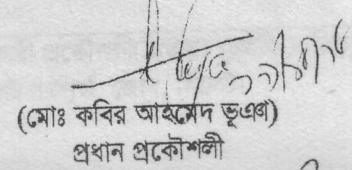 (মোঃ কবির আহমেদ ভূঞা)
প্রধান প্রকৌশলী